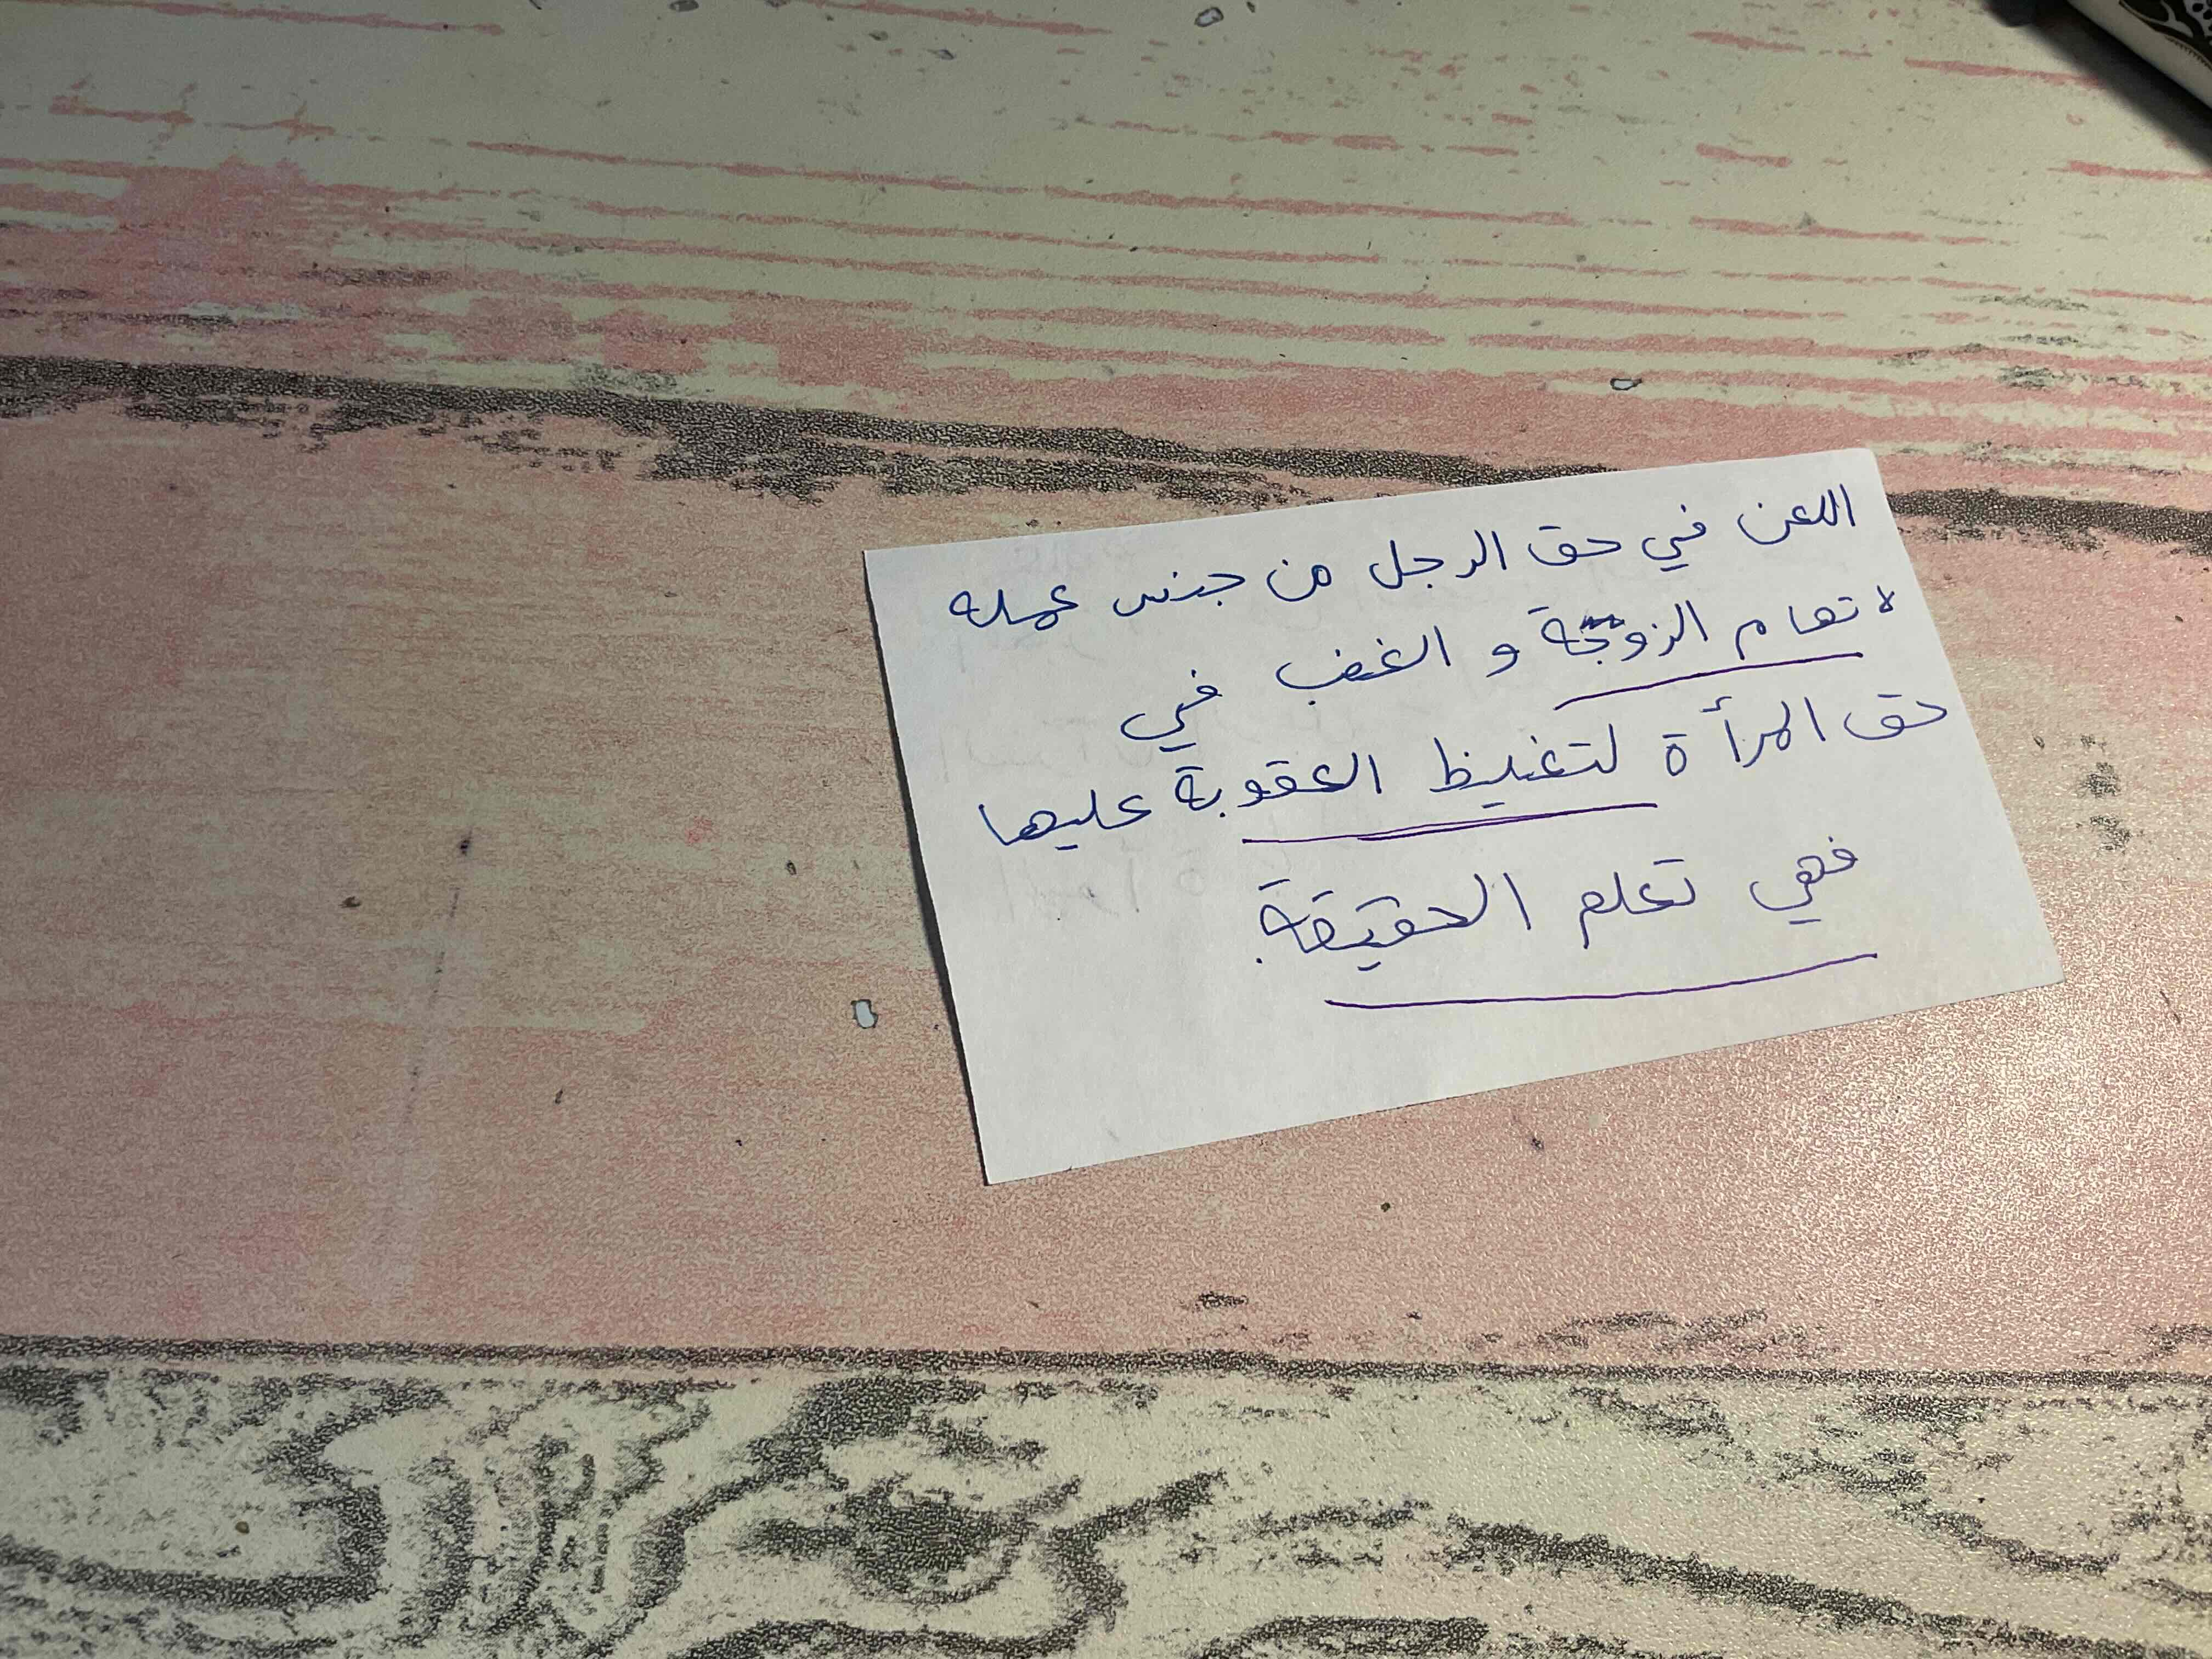 اللعن في حق الرجل من جنس عمله
لاتهام الزوجة و الغضب في
حق المرأة لتغليظ العقوبة عليها
فهي تعلم الحقيقة.